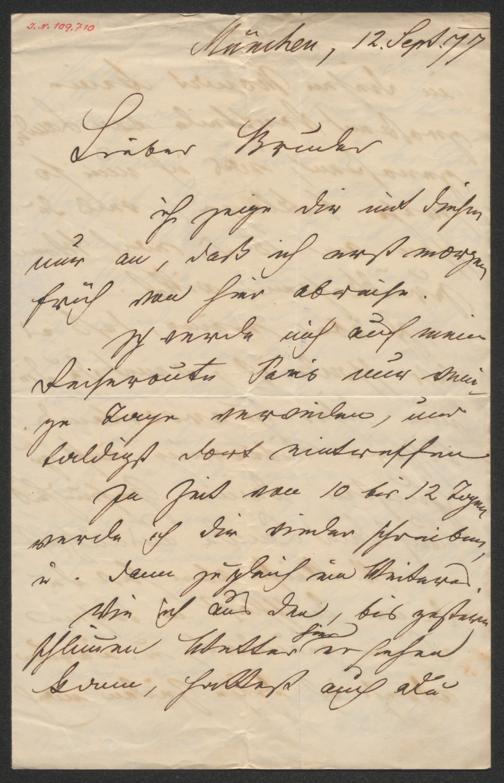 I. N. 109.710
München, 12. Sept. 77
Lieber Bruder
ich zeige dir mit diesen
nur an, daß ich erst morgen
früh von hier abreise.
Ich werde mich auf mein
Reiseroute Paris nur weni-
ge Tage verweilen, und
baldigst dort eintreffen
In Zeit von 10 bis 12 Tagen
werde ich dir wieder schreiben,
u. dann zugleich ein Weiteres.
Wie ich aus den, bis gestern
schlimmen Wetter hier ersehen
kann, hattest auch Du